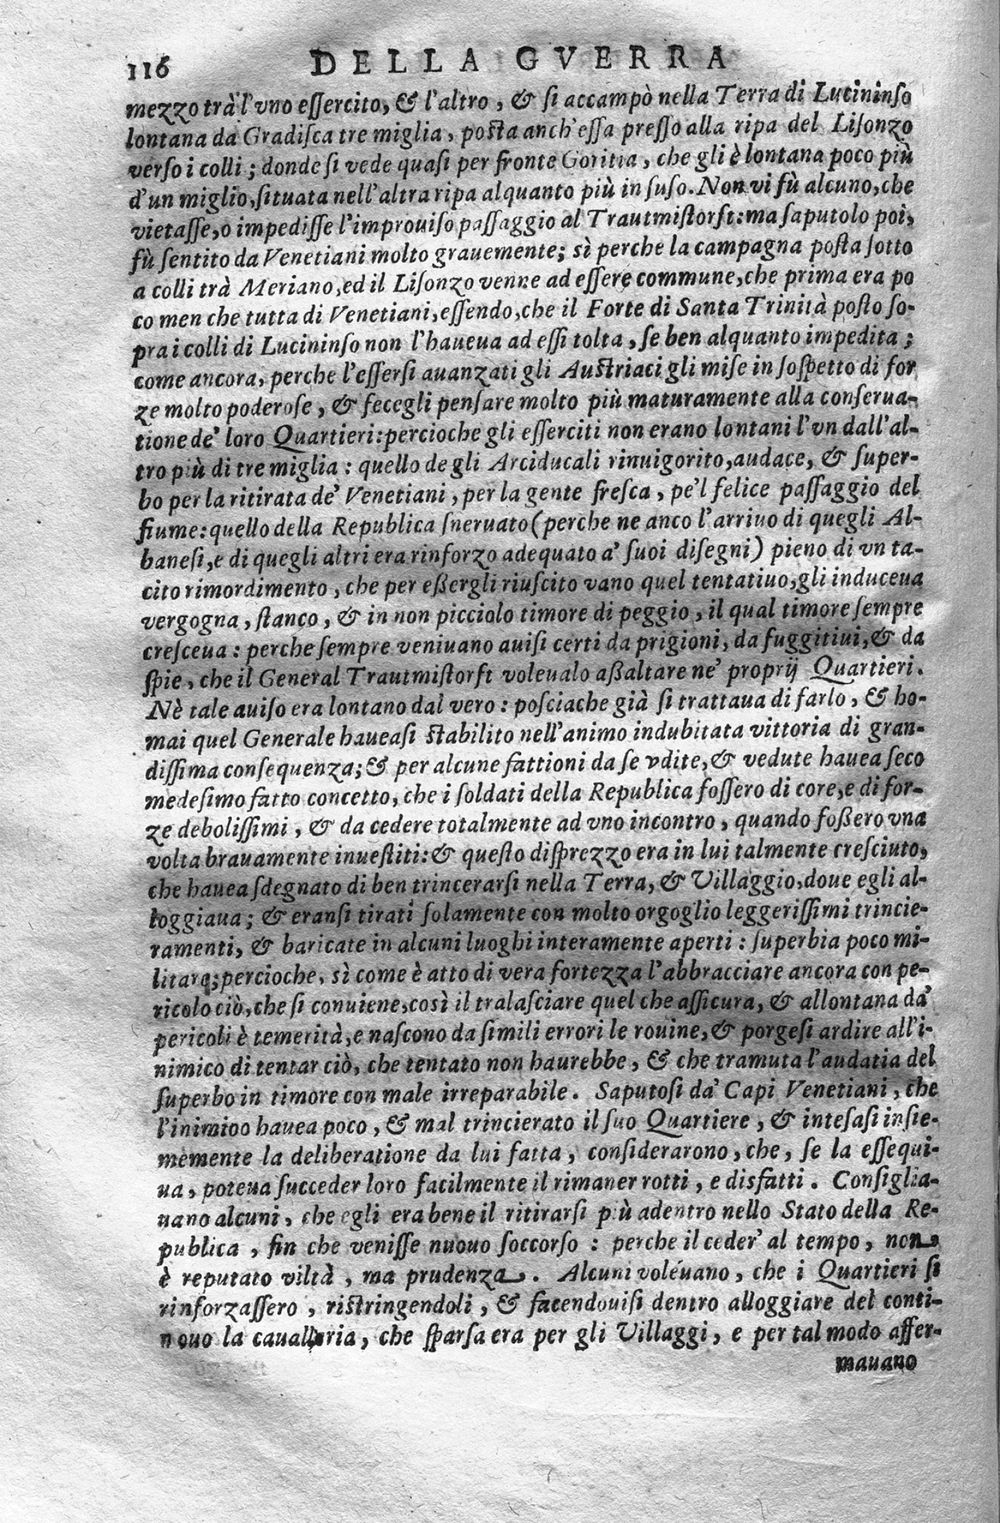 116 DELLA GVERRA
mezzo trà l'vno eſſercito, & l'altro, & ſi accampò nella Terra di Lucininſo
lontana da Gradiſca tre miglia, poſta anch'eſſa preſſo alla ripa del Liſonzo
verſo i colli; donde ſi vede quaſi per fronte Goritia, che gli è lontana poco più
d'un miglio, ſituata nell'altra ripa alquanto più in ſuſo. Non vi fù alcuno, che
vietaſſe, o impediſſe l'improuiſo paſſaggio al Trautmiſtorſt: ma ſaputolo poi,
fù ſentito da Venetiani molto grauemente; sì perche la campagna poſta ſotto
a colli trà Meriano, ed il Liſonzo venne ad eſſere commune, che prima era po
co men che tutta di Venetiani, eſſendo, che il Forte di Santa Trinità poſto ſo-
pra i colli di Lucininſo non l'haueua ad eſſi tolta, ſe ben alquanto impedita;
come ancora, perche l'eſſerſi auanzati gli Auſtriaci gli miſe in ſoſpetto di for
ze molto poderoſe, & fecegli penſare molto più maturamente alla conſerua-
tione de' loro Quartieri: percioche gli eſſerciti non erano lontani l'vn dall'al-
tro più di tre miglia: quello de gli Arciducali rinuigorito, audace, & ſuper-
bo per la ritirata de' Venetiani, per la gente freſca, pe'l felice paſſaggio del
fiume: quello della Republica ſneruato (perche ne anco l'arriuo di quegli Al-
baneſi, e di quegli altri era rinforzo adequato a' ſuoi diſegni) pieno di vn ta-
cito rimordimento, che per eßergli riuſcito vano quel tentatiuo, gli induceua
vergogna, ſtanco, & in non picciolo timore di peggio, il qual timore ſempre
creſceua: perche ſempre veniuano auiſi certi da prigioni, da fuggitiui, & da
ſpie, che il General Trautmiſtorſt voleualo aßaltare ne' proprij Quartieri.
Nè tale auiſo era lontano dal vero: poſciache già ſi trattaua di farlo, & ho-
mai quel Generale haueaſi ſtabilito nell'animo indubitata vittoria di gran-
diſſima conſequenza; & per alcune fattioni da ſe vdite, & vedute hauea ſeco
medeſimo fatto concetto, che i ſoldati della Republica foſſero di core, e di for-
ze deboliſſimi, & da cedere totalmente ad vno incontro, quando foßero vna
volta brauamente inueſtiti: & queſto diſprezzo era in lui talmente creſciuto,
che hauea ſdegnato di ben trincerarſi nella Terra, & Villaggio, doue egli al-
loggiaua; & eranſi tirati ſolamente con molto orgoglio leggeriſſimi trincie-
ramenti, & baricate in alcuni luoghi interamente aperti: ſuperbia poco mi-
litare; percioche, sì come è atto di vera fortezza l'abbracciare ancora con pe-
ricolo ciò, che ſi conuiene, così il tralaſciare quel che aſſicura, & allontana da'
pericoli è temerità, e naſcono da ſimili errori le rouine, & porgeſi ardire all'i-
nimico di tentar ciò, che tentato non haurebbe, & che tramuta l'audatia del
ſuperbo in timore con male irreparabile. Saputoſi da' Capi Venetiani, che
l'inimico hauea poco, & mal trincierato il ſuo Quartiere, & inteſaſi inſie-
memente la deliberatione da lui fatta, conſiderarono, che, ſe la eſſequi-
ua, poteua ſucceder loro facilmente il rimaner rotti, e disfatti. Conſiglia-
uano alcuni, che egli era bene il ritirarſi più adentro nello Stato della Re-
publica, fin che veniſſe nuouo ſoccorſo: perche il ceder' al tempo, non
è reputato viltà, ma prudenza. Alcuni voleuano, che i Quartieri ſi
rinforzaſſero, riſtringendoli, & facendouiſi dentro alloggiare del conti-
nouo la caualleria, che ſparſa era per gli Villaggi, e per tal modo affer-
mauano